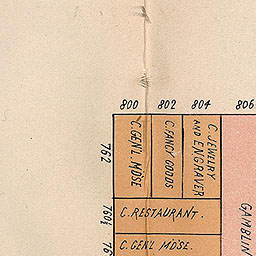 800 802 804 806
762
C. GEN'L MDSE.
C. FANCY GOODS
C. JEWELRY
AND ENGRAVER
760½
C. RESTAURANT.
GAMBLIN
76
C. GEN'L MDSE.